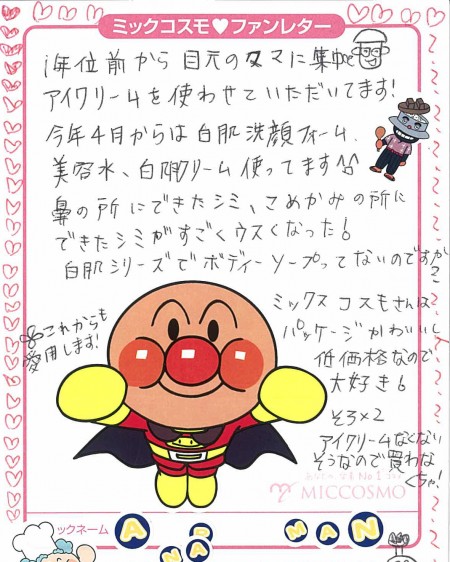 ミックコスモ♥ファンレター
1年位前から目元のクマに集中
アイクリームを使わせていただいてます!
今年4月からは白肌洗顔フォーム、
美容水、白肌クリーム使ってます♪
鼻の所にできたシミ、こめかみの所に
できたシミがすごくウスくなった!
白肌シリーズでボディーソープってないのですか?
ミックスコスモさんは
パッケージかわいいし
低価格なので
大好き!
これからも
愛用します!
そろ×2
アイクリームなくない
そうなので買わな
くちゃ!
MICCOSMO
ックネーム
A
N
MAN